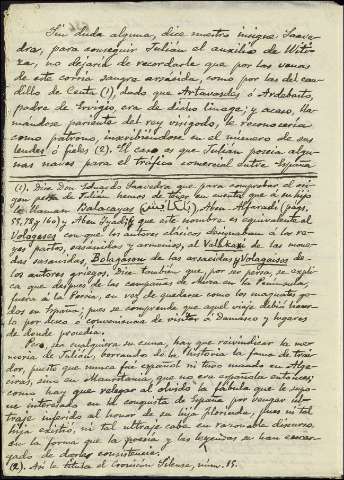 Sin duda alguna, dice nuestro insigne Saave-
dra, para conseguir Julián el auxilio de Witi-
za, no dejaría de recordarle que por las venas
de este corría sangre arsácida, como por las del cau-
dillo de Ceuta (1), dado que Artavasdes ó Ardebasto,
padre de Ervigio era de dicho linage; y acaso, lla-
mándose pariente del rey visigodo, le reconocería
como patrono, inscribiéndose en el número de sus
leudes ó fieles (2). El caso es que Julián poseía algu-
nas naves para el tráfico comercial entre España
(1). Dice Don Eduardo Saavedra que para comprobar el orí-
gen persa de Julián hemos de tener en cuenta que á su hijo
le llaman Balacayas Aben Alfaradi (págs.
y 160) y Aben Iyadh; que este nombre es equivalente al
Vologeses con que los autores clásicos designaban á los re-
yes partos, sasánidas y armenios, al de las mone-
das sasánidas, de las arsácidas y de
los autores griegos. Dice también que, por ser persa, se expli-
ca que después de las campañas de Muza en la Península,
fuera á la Persia, en vez de quedarse como los magnates go-
dos en España; pues se comprende que aquel viaje debió hacer-
lo por deseo ó conveniencia de visitar á Damasco y lugares
de donde procedía.
Pero sea cualquiera su cuna, hay que reivindicar la me-
moria de Julián, borrando de la historia la fama de trai-
dor, puesto que nunca fué español ni tuvo mando en Alge-
ciras, sino en Mauritania, que no era española entonces;
como hay que relegar al olvido la fábula que le supo-
ne interesado en la conquista de España por vengar ul-
traje inferido al honor de su hija Florinda, pues ni tal
hija existió, ni tal ultraje cabe en razonable discurso
en la forma que la poesía y las leyendas se han encar-
gado de darles consistencia.
(2). Así le titula el Cronicón Silense, núm. 15.